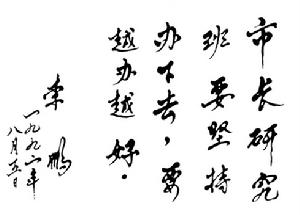 市长研究
班要坚持
办下去，要
越办越
好．
李鹏
一九九一年
八月五日